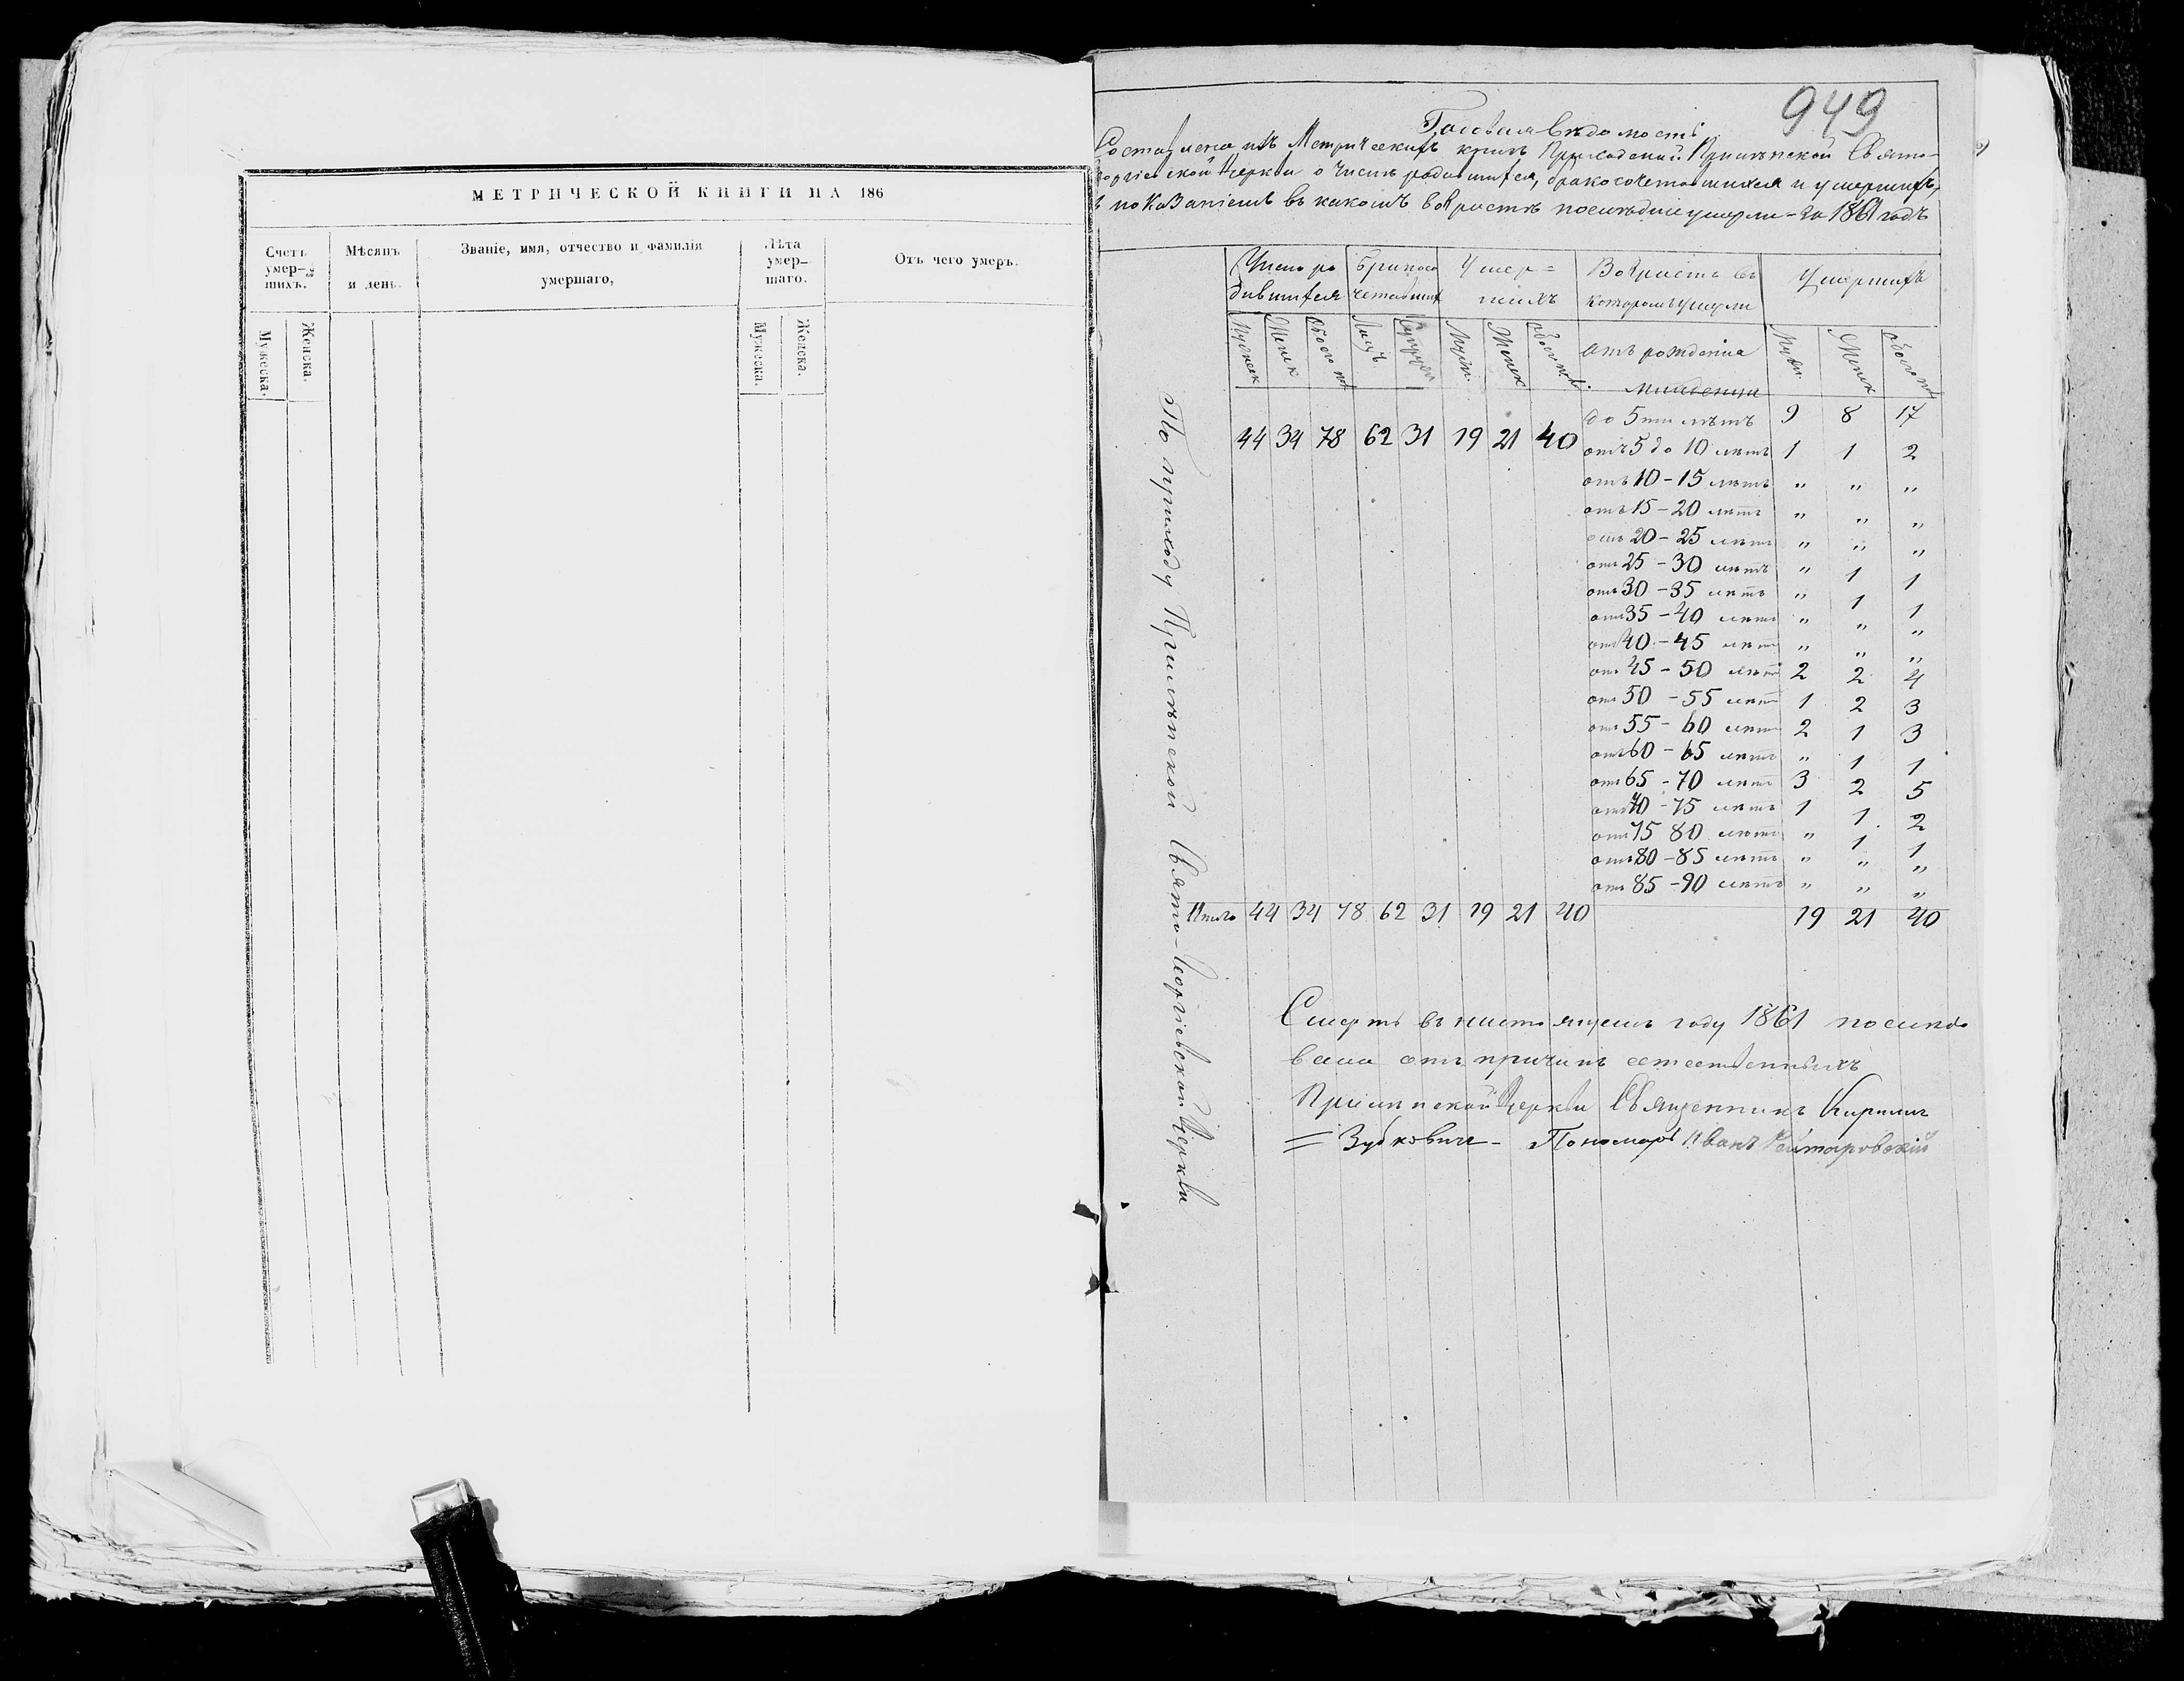 МЕТРИЧЕСКОЙ КНИГИ НА 186
Счетъ умер-шихъ.
Мѣсяцъ и день.
Званіе, имя, отчество и фамилія умершаго,
Лѣта умер-шаго.
Отъ чего умеръ.
Мужеска. Женска. Мужеска. Женска.
949
Годовая вѣдомость
Составлена изъ Метрическихъ книгъ Приходской Прилѣпской Свято-
Георгіевской Церкви о числѣ родившихся, бракосочетавшихся и умершихъ,
съ показаніемъ въ какомъ возрастѣ послѣдніе умерли - за 1861 годъ
Число ро дившихся
Бракосо четавших
Умер= шихъ
Возрастъ въ которомъ умерли
Умершихъ
Мужеск Женск Обоего пол Лицъ Супруж Муж. Женск Обоего пол отъ рожденія Муж. Женск Обоего пол
Младенцы
до 5ти лѣтъ 9 8 17
44 34 78 62 31 19 21 40
отъ 5 до 10 лѣтъ 1 1 2
отъ 10 - 15 лѣтъ " " "
отъ 15 - 20 лѣтъ " " "
отъ 20 - 25 лѣтъ " " "
отъ 25 - 30 лѣтъ " 1 1
отъ 30 - 35 лѣтъ " 1 1
отъ 35 - 40 лѣтъ " " "
отъ 40 - 45 лѣтъ " " "
отъ 45 - 50 лѣтъ 2 2 4
отъ 50 - 55 лѣтъ 1 2 3
отъ 55 - 60 лѣтъ 2 1 3
отъ 60 - 65 лѣтъ " 1 1
отъ 65 - 70 лѣтъ 3 2 5
отъ 70 - 75 лѣтъ 1 1 2
отъ 75 80 лѣтъ " 1 1
отъ 80 - 85 лѣтъ " " "
отъ 85 - 90 лѣтъ " " "
Итого 44 34 78 62 31 19 21 40 19 21 40
По приходу Прилѣпской Свято-Георгіевской Церкви
Смерть въ настоящемъ году 1861 послѣдо
вала отъ причинъ естественныхъ
Прилѣпской Церкви Священникъ Кириллъ
= Зубковичъ - Пономарь Иванъ Рейтаровскій